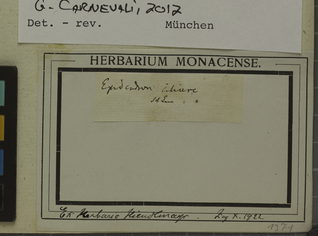 G. CARNEVALI, 2012
Det. - rev. München
HERBARIUM MONACENSE.
Epidendron ciliare
Ex Herbario
X. 1922